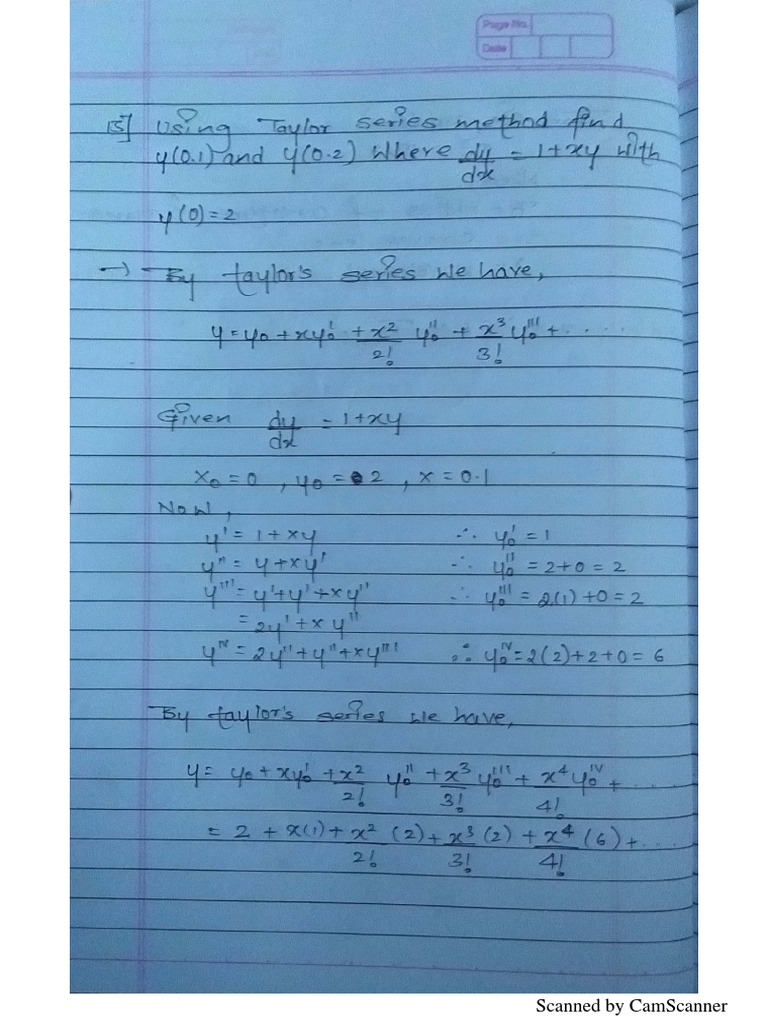 Page No.
Date
15] Using Taylor series method find
y(0.1) and y(0.2) where dy/dx = 1+xy with
y(0)=2
→ By taylor's series we have,
y = y₀ + xy₀' + x²/2! y₀'' + x³/3! y₀''' + .....
Given dy/dx = 1+xy
x₀ = 0 , y₀ = 2 , x = 0.1
Now,
y' = 1 + xy ∴ y₀' = 1
y'' = y + xy' ∴ y₀'' = 2+0 = 2
y''' = y'+y'+xy'' ∴ y₀''' = 2(1)+0 = 2
= 2y' + xy''
yⁱᵛ = 2y''+y''+xy''' ∴ y₀ⁱᵛ = 2(2)+2+0 = 6
By taylor's series we have,
y = y₀ + xy₀' + x²/2! y₀'' + x³/3! y₀''' + x⁴/4! y₀ⁱᵛ + .....
= 2 + x(1) + x²/2! (2) + x³/3! (2) + x⁴/4! (6) + .....
Scanned by CamScanner